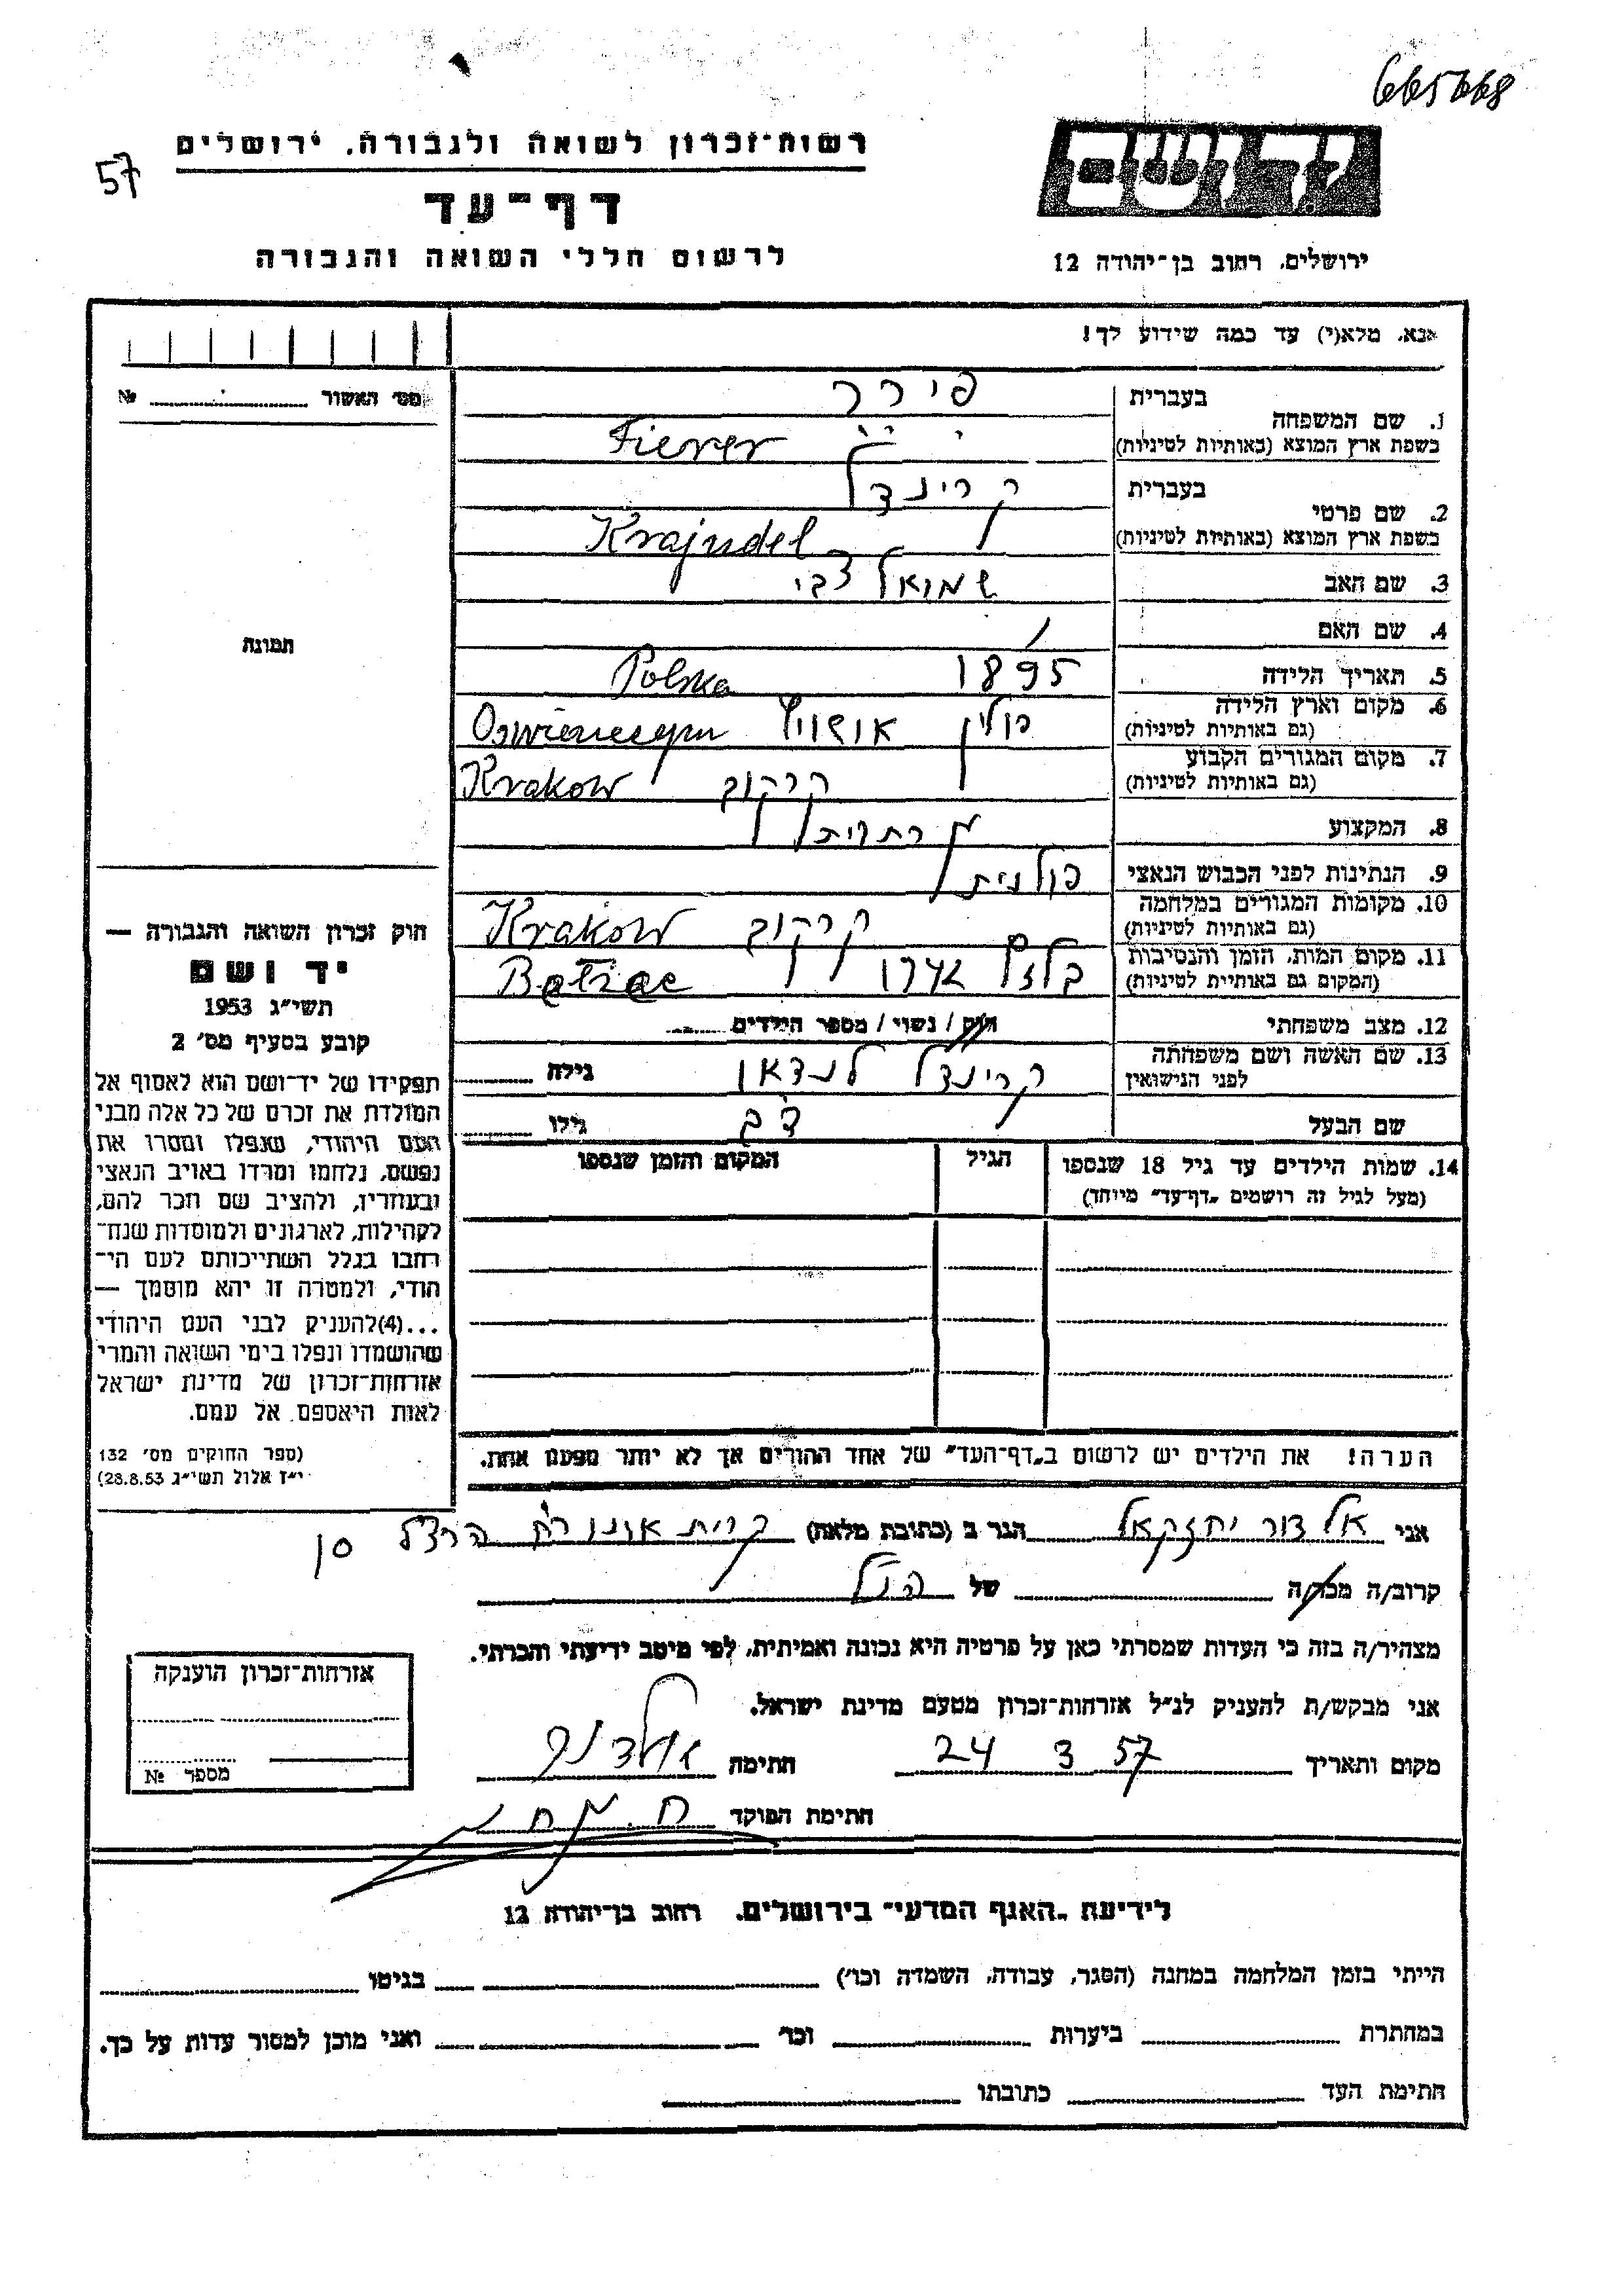 665668
57
רשות־זכרון לשואה ולגבורה, ירושלים
דף־עד
לרשום חללי השואה והגבורה
יד ושם
ירושלים, רחוב בן־יהודה 12
אנא, מלא(י) עד כמה שידוע לך!
מס׳ האשור № 
1. שם המשפחה
בעברית פירר
בשפת ארץ המוצא (באותיות לטיניות) Fierer
2. שם פרטי
בעברית קרינדל
בשפת ארץ המוצא (באותיות לטיניות) Krajndel
3. שם האב שמואל צבי
4. שם האם /
5. תאריך הלידה 1895
6. מקום וארץ הלידה Polska
(גם באותיות לטיניות) פולין
7. מקום המגורים הקבוע
(גם באותיות לטיניות) קרקוב Krakow
8. המקצוע
9. הנתינות לפני הכבוש הנאצי פולנית
10. מקומות המגורים במלחמה
(גם באותיות לטיניות) קרקוב Krakow
11. מקום המות, הזמן והנסיבות
(המקום גם באותיות לטיניות) 1942
12. מצב משפחתי רווק / נשוי / מספר הילדים
13. שם האשה ושם משפחתה
לפני הנישואין קרינדל לנדאו גילה
שם הבעל דב גילו
14. שמות הילדים עד גיל 18 שנספו
(מעל לגיל זה רושמים „דף־עד" מיוחד)
הגיל
המקום והזמן שנספו
הערה! את הילדים יש לרשום ב„דף־העד" של אחד ההורים אך לא יותר מפעם אחת.
תמונה
חוק זכרון השואה והגבורה —
יד ושם
תשי״ג 1953
קובע בסעיף מס׳ 2
תפקידו של יד־ושם הוא לאסוף אל
המולדת את זכרם של כל אלה מבני
העם היהודי, שנפלו ומסרו את
נפשם, נלחמו ומרדו באויב הנאצי
ובעוזריו, ולהציב שם וזכר להם,
לקהילות, לארגונים ולמוסדות שנח־
רבו בגלל השתייכותם לעם הי־
הודי, ולמטרה זו יהא מוסמך —
...(4)להעניק לבני העם היהודי
שהושמדו ונפלו בימי השואה והמרי
אזרחות־זכרון של מדינת ישראל
לאות היאספם אל עמם.
(ספר החוקים מס׳ 132
י״ז אלול תשי״ג 28.8.53)
אני יחזקאל הגר ב (כתובת מלאה) קרית אונו רח הרצל
קרוב/ה מכר/ה של הנ״ל
מצהיר/ה בזה כי העדות שמסרתי כאן על פרטיה היא נכונה ואמיתית, לפי מיטב ידיעתי והכרתי.
אני מבקש/ת להעניק לנ״ל אזרחות־זכרון מטעם מדינת ישראל.
מקום ותאריך 24 3 57 חתימה
חתימת הפוקד
אזרחות־זכרון הוענקה
מספר №
לידיעת „האגף המדעי" בירושלים, רחוב בן־יהודה 12
הייתי בזמן המלחמה במחנה (הסגר, עבודה, השמדה וכו׳) בגיטו
במחתרת ביערות וכו׳ ואני מוכן למסור עדות על כך.
חתימת העד כתובתו